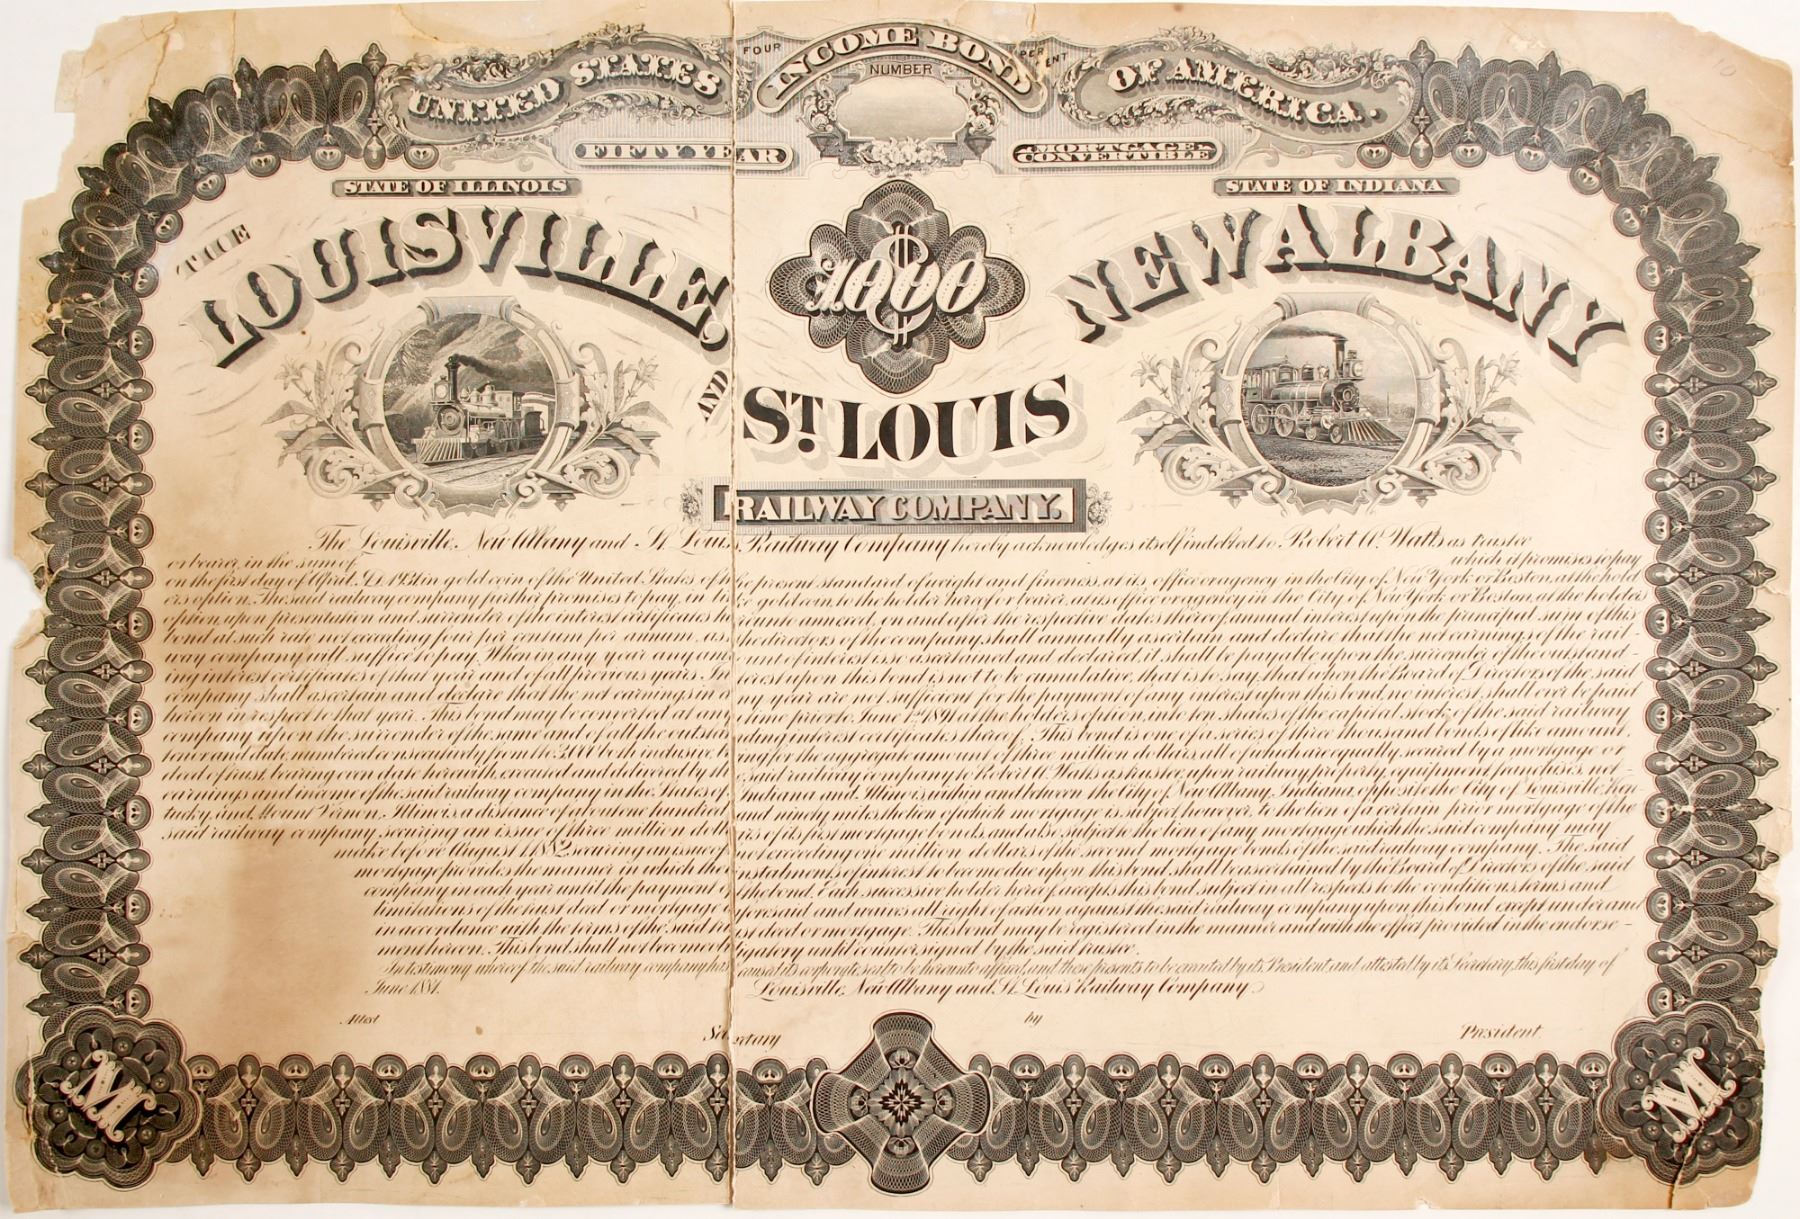 FOUR INCOME BOND PER CENT
UNITED STATES NUMBER OF AMERICA.
FIFTY YEAR MORTGAGE CONVERTIBLE
STATE OF ILLINOIS STATE OF INDIANA
THE LOUISVILLE, NEW ALBANY
$1.000
AND ST. LOUIS
RAILWAY COMPANY.
The Louisville, New Albany and St. Louis Railway Company hereby acknowledges itself indebted to Robert A. Watts as trustee
or bearer, in the sum of which it promises to pay
on the first day of April A.D. 1931 in gold coin of the United States of the present standard of weight and fineness, at its office or agency in the City of New York or Boston, at the hold
ers option. The said railway company further promises to pay, in like gold coin, to the holder hereof or bearer, at its office or agency in the City of New York or Boston, at the holders
option, upon presentation and surrender of the interest certificates hereunto annexed, on and after the respective dates thereof, annual interest upon the principal sum of this
bond at such rate not exceeding four per centum per annum, as the directors of the company shall annually ascertain and declare that the net earnings of the rail-
way company will suffice to pay. When in any year any amount of interest is so ascertained and declared, it shall be payable upon the surrender of the outstand-
ing interest certificates of that year and of all previous years. Interest upon this bond is not to be cumulative, that is to say, that upon the Board of Directors of the said
company shall ascertain and declare that the net earnings in any year are not sufficient for the payment of any interest upon this bond, no interest shall ever be paid
hereon in respect to that year. This bond may be converted at any time prior to June 1st 1891 at the holders option, into ten shares of the capital stock of the said railway
company upon the surrender of the same and of all the outstanding interest certificates thereof. This bond is one of a series of three thousand bonds of like amount,
tenor and date, numbered consecutively from 1 to 3000 both inclusive, being for the aggregate amount of three million dollars all of which are equally secured by a mortgage or
deed of trust, bearing even date herewith, executed and delivered by the said railway company to Robert A. Watts as trustee, upon railway property, equipment, franchises, net
earnings and income of the said railway company in the States of Indiana and Illinois within and between the City of New Albany, Indiana, opposite the City of Louisville, Ken-
tucky, and Mount Vernon, Illinois, a distance of about one hundred and ninety miles, the lien of which mortgage is subject, however, to the lien of a certain prior mortgage of the
said railway company, securing an issue of three million dollars of its first mortgage bonds, and also subject to the lien of any mortgage which the said company may
make before August 1, 1882, securing an issue of not exceeding one million dollars of the second mortgage bonds of the said railway company. The said
mortgage provides the manner in which the instalments of interest to become due upon this bond, shall be ascertained by the Board of Directors of the said
company in each year until the payment of the bond. Each successive holder hereof accepts this bond subject in all respects to the conditions, terms and
limitations of the trust deed or mortgage aforesaid and waives all right of action against the said railway company upon this bond except under and
in accordance with the terms of the said trust deed or mortgage. This bond may be registered in the manner and with the effect provided in the endorse-
ment hereon. This bond shall not become obligatory until countersigned by the said trustee.
In testimony whereof the said railway company has caused its corporate seal to be hereunto affixed, and these presents to be executed by its President and attested by its Secretary, this first day of
June 1881. Louisville, New Albany and St. Louis Railway Company
Attest by
Secretary President
M M
10